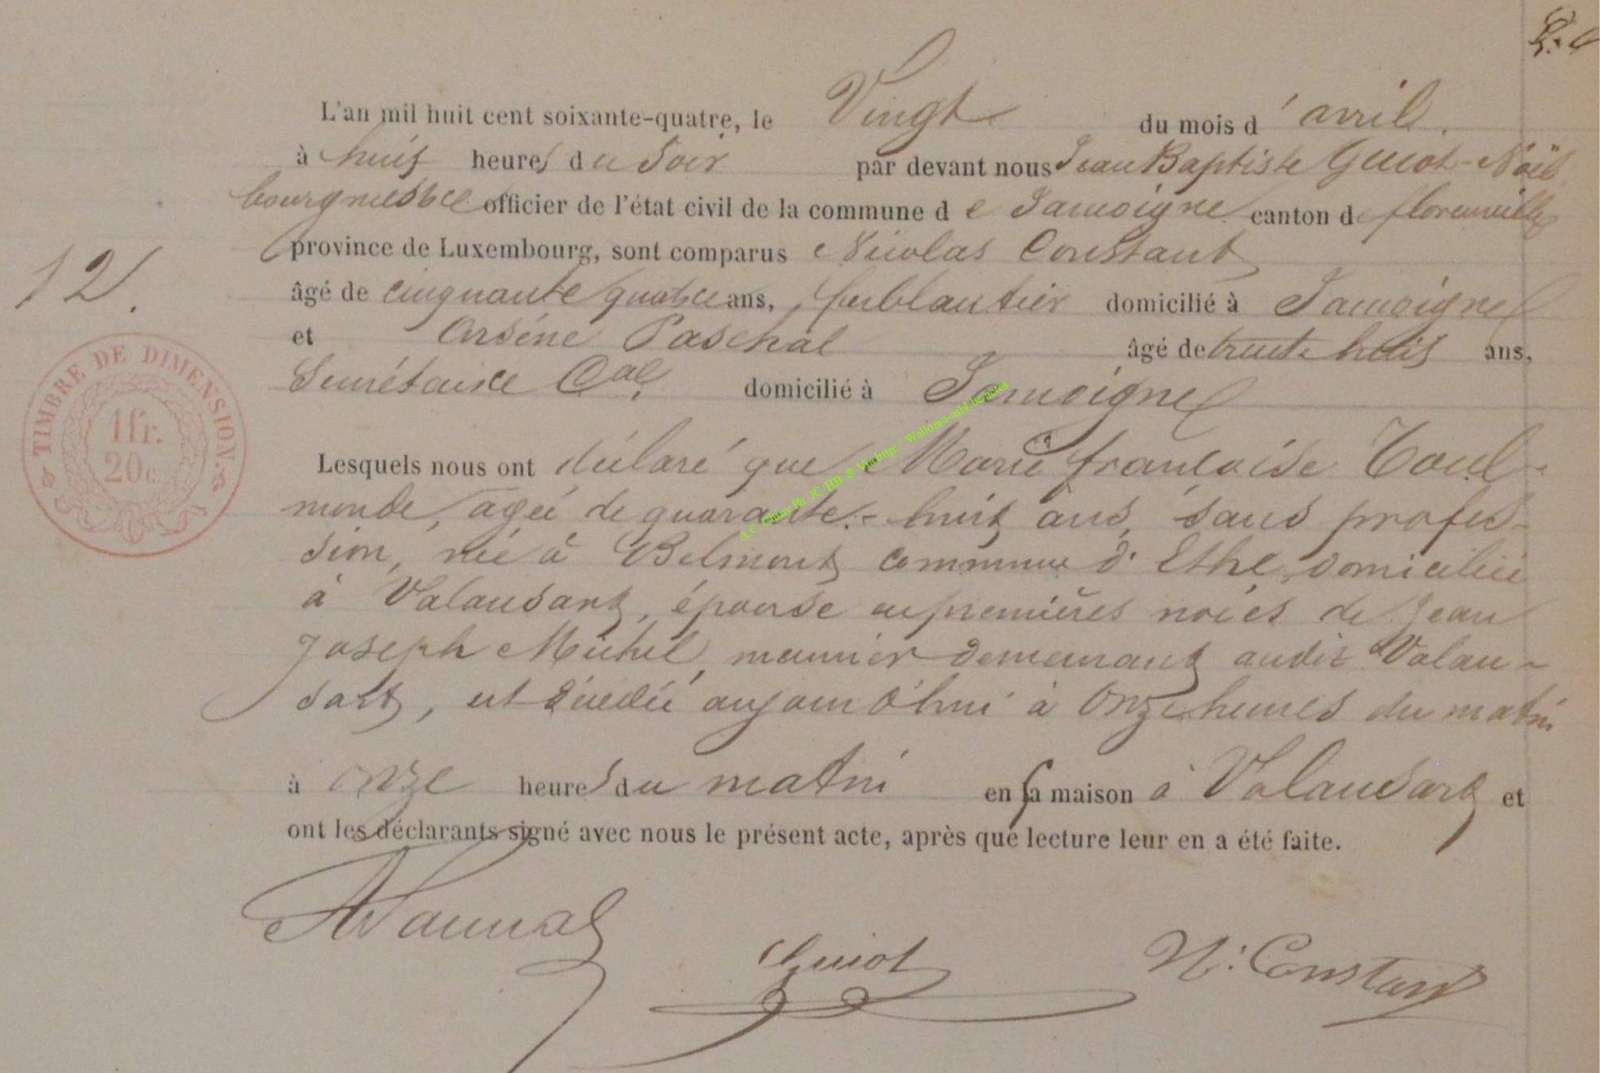 L'an mil huit cent soixante-quatre, le Vingt du mois d'avril.
à huit heures du Soir par devant nous Jean Baptiste Guiot-Noël
bourgmestre officier de l'état civil de la commune de Jamoigne canton de florenville
province de Luxembourg, sont comparus Nicolas Constant
12.
âgé de cinquante quatre ans, ferblantier domicilié à Jamoigne
et Arsène Paschal âgé de trente huit ans,
Secrétaire Cal, domicilié à Jamoigne
TIMBRE DE DIMENSION.
1 fr.
20 c.
Lesquels nous ont déclaré que Marie françoise Toul-
monde, agée de quarante-huit ans, sans profes-
sion, née à Belmont commune d'Ethe, domiciliée
à Valansart, épouse en premières noces de Jean
Joseph Michel, meunier demeurant audit Valan-
sart, est décédée aujourd'hui à Onze heures du matin
à onze heures du matin en sa maison à Valansart et
ont les déclarants signé avec nous le présent acte, après que lecture leur en a été faite.
Guiot
N. Constant